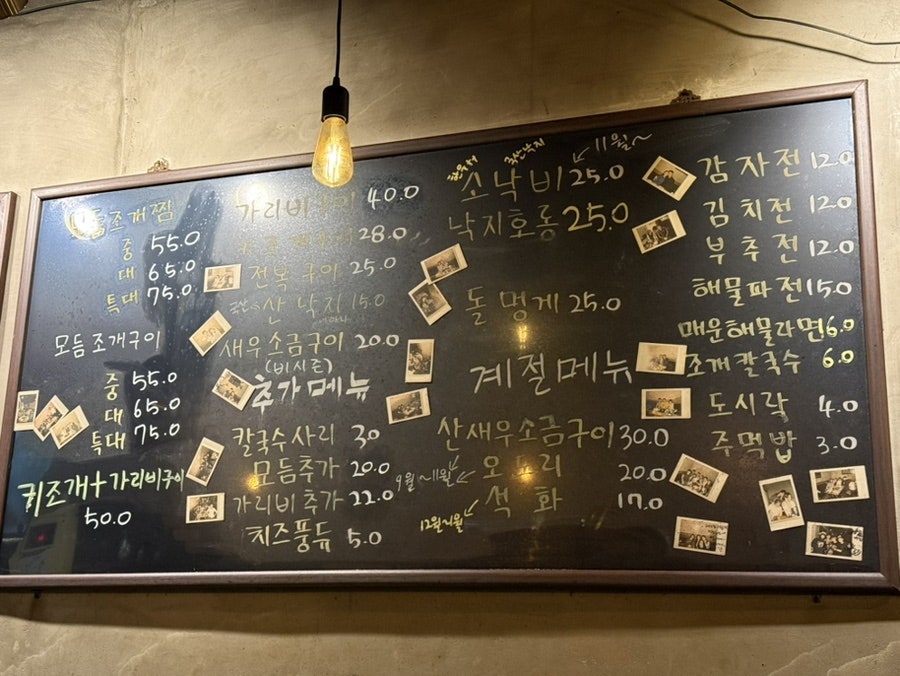 모듬조개찜
중 55.0
대 65.0
특대 75.0
모듬조개구이
중 55.0
대 65.0
특대 75.0
키조개+가리비구이
50.0
가리비구이 40.0
28.0
전복구이 25.0
국산 산낙지 15.0
새우소금구이 20.0
(비시즌)
추가메뉴
칼국수사리 3.0
모듬추가 20.0
가리비추가 22.0
치즈퐁듀 5.0
한우 국산낙지 11월~
소낙비 25.0
낙지호롱 25.0
돌멍게 25.0
계절메뉴
산새우소금구이 30.0
9월~11월
오도리 20.0
석화 17.0
감자전 12.0
김치전 12.0
부추전 12.0
해물파전 15.0
매운해물라면 6.0
조개칼국수 6.0
도시락 4.0
주먹밥 3.0